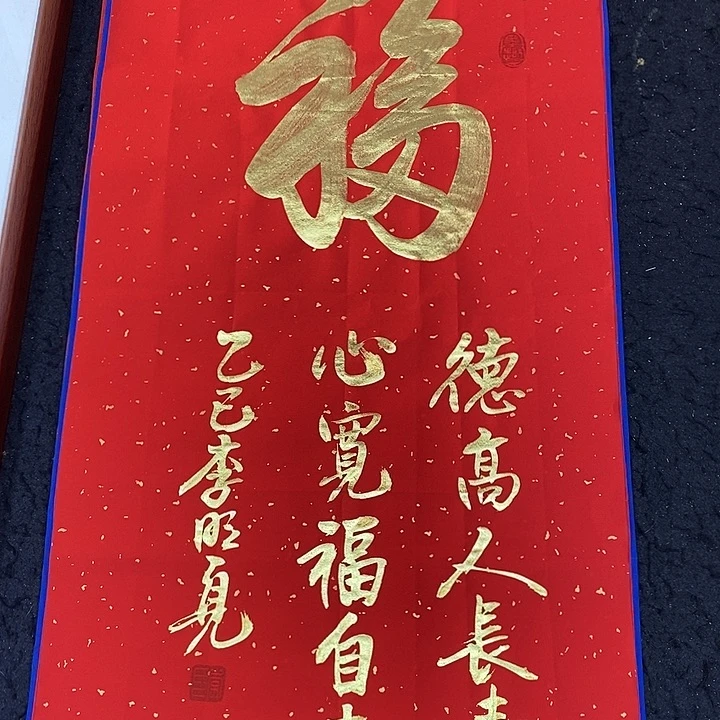 福
德高人長
心寬福自
乙巳李明亮